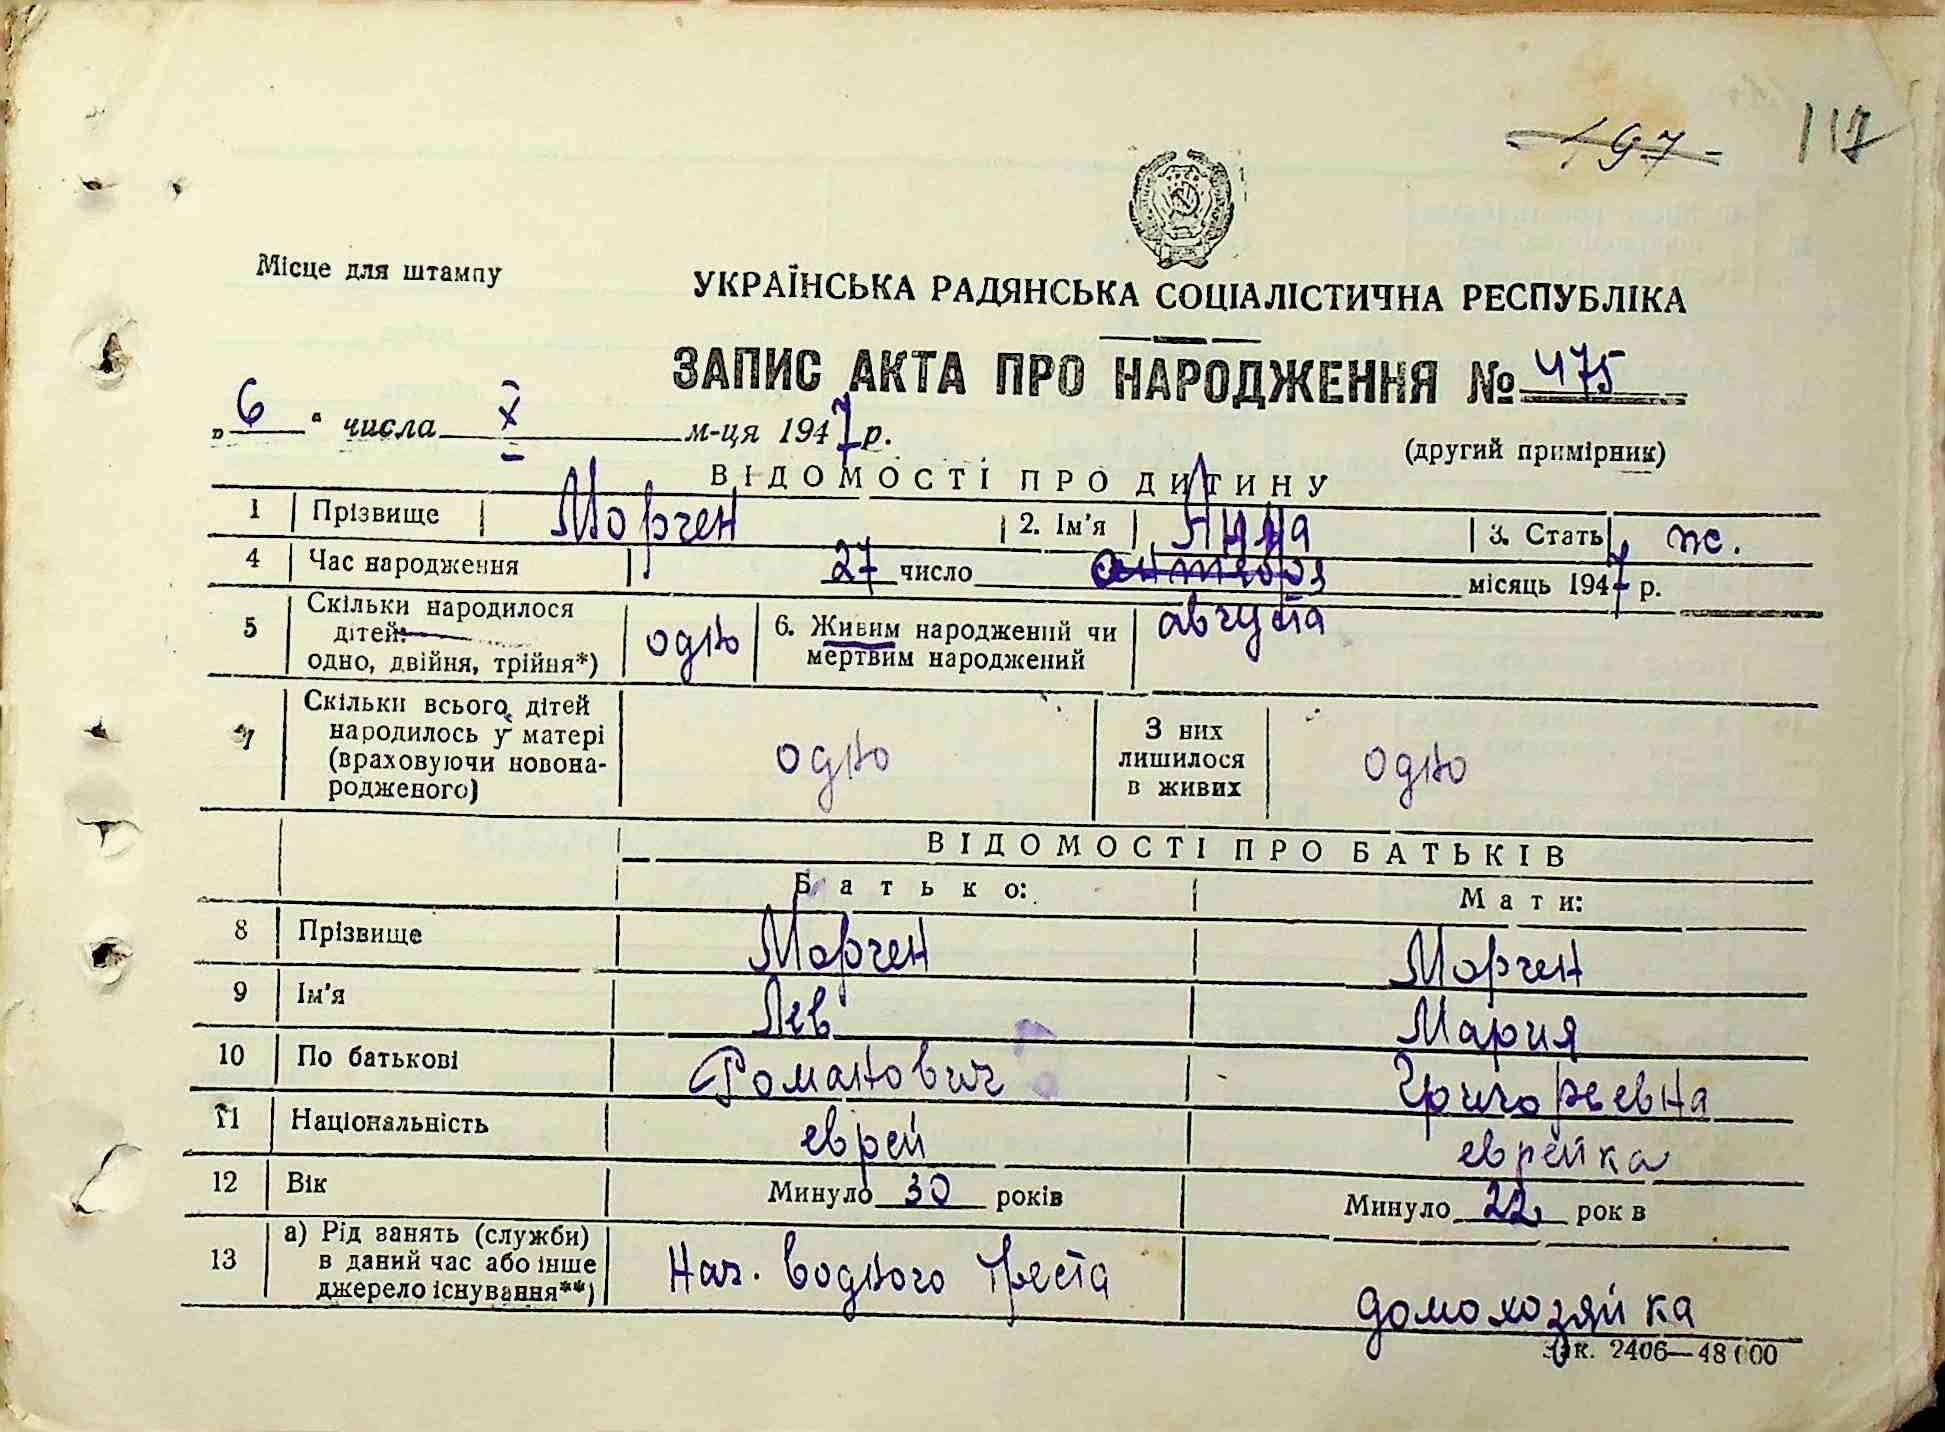 197 117
Місце для штампу
УКРАЇНСЬКА РАДЯНСЬКА СОЦІАЛІСТИЧНА РЕСПУБЛІКА
ЗАПИС АКТА ПРО НАРОДЖЕННЯ № 475
„ 6 “ числа X м-ця 1947 р.
(другий примірник)
ВІДОМОСТІ ПРО ДИТИНУ
1 Прізвище Морген 2. Ім'я Анна 3. Стать ж.
4 Час народження 27 число октября місяць 1947 р.
августа
5 Скільки народилося дітей: одно, двійня, трійня*) одно 6. Живим народжений чи мертвим народжений
7 Скільки всього дітей народилось у матері (враховуючи новонародженого) одно З них лишилося в живих одно
ВІДОМОСТІ ПРО БАТЬКІВ
Батько: Мати:
8 Прізвище Морген Морген
9 Ім'я Лев Мария
10 По батькові Романович Григореевна
11 Національність еврей еврейка
12 Вік Минуло 30 років Минуло 22 рок в
13 а) Рід занять (служби) в даний час або інше джерело існування**) Нач. водного треста домохозяйка
Зак. 2406—48 000